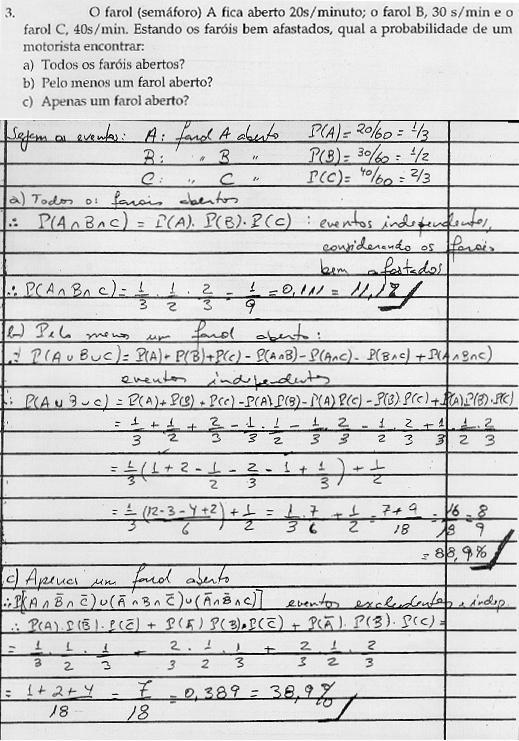 3. O farol (semáforo) A fica aberto 20s/minuto; o farol B, 30 s/min e o
farol C, 40s/min. Estando os faróis bem afastados, qual a probabilidade de um
motorista encontrar:
a) Todos os faróis abertos?
b) Pelo menos um farol aberto?
c) Apenas um farol aberto?
Sejam os eventos: A: farol A aberto P(A) = 20/60 = 1/3
B: " B " P(B) = 30/60 = 1/2
C: " C " P(C) = 40/60 = 2/3
a) Todos os farois abertos
∴ P(A∩B∩C) = P(A). P(B). P(C) : eventos independentes,
considerando os farois
bem afastados
∴ P(A∩B∩C) = 1/3 . 1/2 . 2/3 = 1/9 = 0,111 = 11,1%
b) Pelo menos um farol aberto:
∴ P(A∪B∪C) = P(A)+P(B)+P(C) - P(A∩B) - P(A∩C) - P(B∩C) + P(A∩B∩C)
eventos independentes
∴ P(A∪B∪C) = P(A)+P(B)+P(C) - P(A)P(B) - P(A)P(C) - P(B)P(C) + P(A).P(B).P(C)
= 1/3 + 1/2 + 2/3 - 1/3 . 1/2 - 1/3 . 2/3 - 1/2 . 2/3 + 1/3 . 1/2 . 2/3
= 1/3 (1 + 2 - 1/2 - 2/3 - 1 + 1/3) + 1/2
= 1/3 (12-3-4+2)/6 + 1/2 = 1/3 . 7/6 + 1/2 = 7+9/18 = 16/18 = 8/9
= 88,9%
c) Apenas um farol aberto
∴ P[(A∩B̄∩C̄)∪(Ā∩B∩C̄)∪(Ā∩B̄∩C)] eventos excludentes e indep.
∴ P(A).P(B̄).P(C̄) + P(Ā)P(B).P(C̄) + P(Ā).P(B̄).P(C) =
= 1/3 . 1/2 . 1/3 + 2/3 . 1/2 . 1/3 + 2/3 . 1/2 . 2/3
= 1+2+4/18 = 7/18 = 0,389 = 38,9%